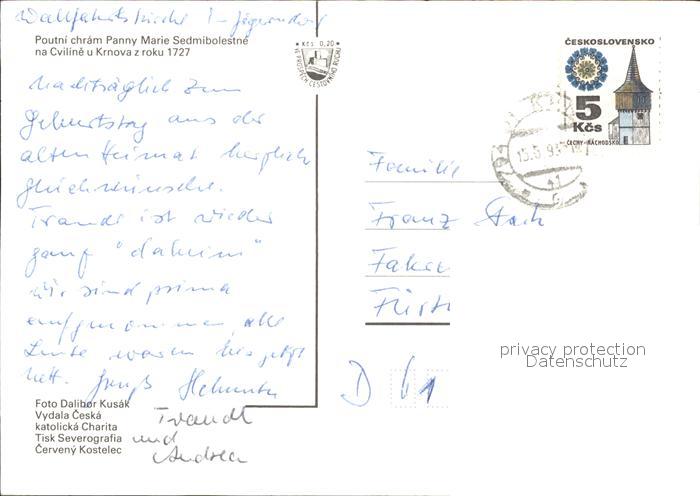 Wallfahrtskirche in Jägerndorf
Poutní chrám Panny Marie Sedmibolestné
na Cvilíně u Krnova z roku 1727
Kčs 0,20
VE PROSPĚCH CESTOVNÍHO RUCHU
ČESKOSLOVENSKO
5
Kčs
ČECHY-NÁCHODSKO
15.5.93
Nachträglich zum
Geburtstag aus der
alten Heimat herzlich
Glückwünsche.
Traudl ist wieder
ganz "daheim"
Wir sind prima
aufgenommen, alle
Leute waren bis jetzt
nett. Helmuth
Familie
Franz
D 61
privacy protection
Datenschutz
Foto Dalibor Kusák
Vydala Česká
katolická Charita
Tisk Severografia
Červený Kostelec
Traudl
und
Andrea